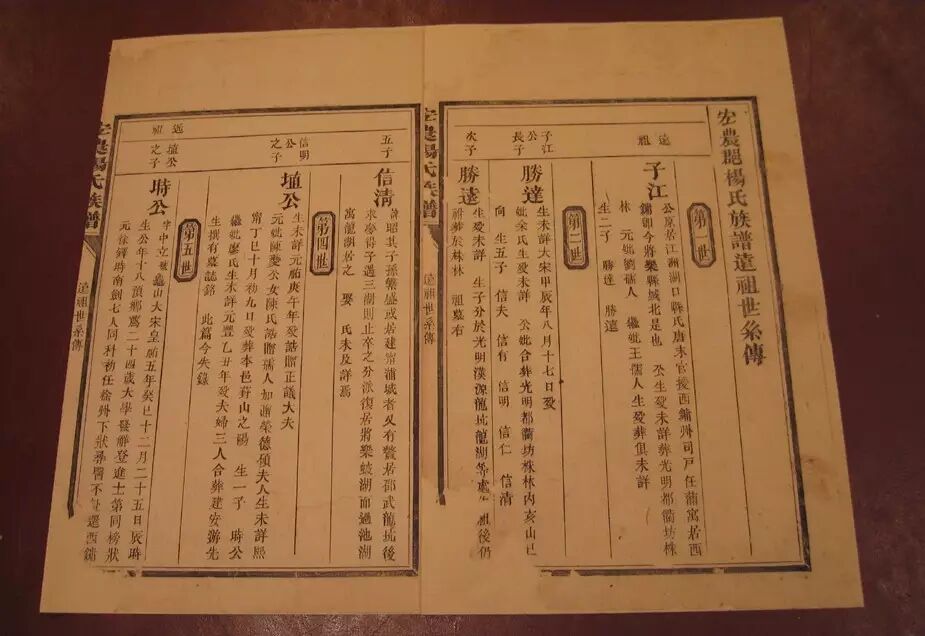 宏農郡楊氏族譜遠祖世系傳
第一世
遠祖
子江
公原居江洲湖口縣氏唐末官授西鏞州司戶任蒲寓居西
鏞顉今府樂縣城北是也 公生歿未詳葬光明都衢坊株
林 元妣劉孺人 繼妣王孺人生歿葬俱未詳
生二子 勝達 勝遠
第二世
子江公長子
勝達
生未詳大宋甲辰年八月十七日歿
妣余氏生歿未詳 公妣合葬光明都衢坊株林內亥山巳
向 生五子 信夫 信有 信明 信仁 信清
次子
勝遠
生歿未詳 生子分於光明漠源龍坑龍湖等處 祖後仍
祔葬於株林 祖墓右
宏農楊氏族譜
遠祖世系傳
五子
信清
昭其子孫繁盛或居建甯蒲城者又有蟄居邵武龍坑後
求夢得子遇三湖則止卒之分派復居將樂蛟湖而過池湖
寓龍湖居之 娶 氏未及詳焉
第四世
信明公之子
埴公
生未詳元祐庚午年歿誥贈正議大夫
元妣陳夔公女陳氏誥贈孺人加贈榮德碩夫人生未詳熙
甯丁巳十月初九日歿葬本邑封山之陽 生一子 時公
繼妣廖氏生未詳元豐乙丑年歿夫婦三人合葬建安游先
生撰有墓誌銘 此篇今失錄
第五世
遠祖
埴公之子
時公
字中立號龜山大宋皇祐五年癸巳十二月二十五日辰時
生公年十八預鄉薦二十四歲大學發解登進士第同榜狀
元徐鐸時南劍七人同科初任徐州下狀尋醫不赴還西鏞
宏農楊氏族譜
遠祖世系傳